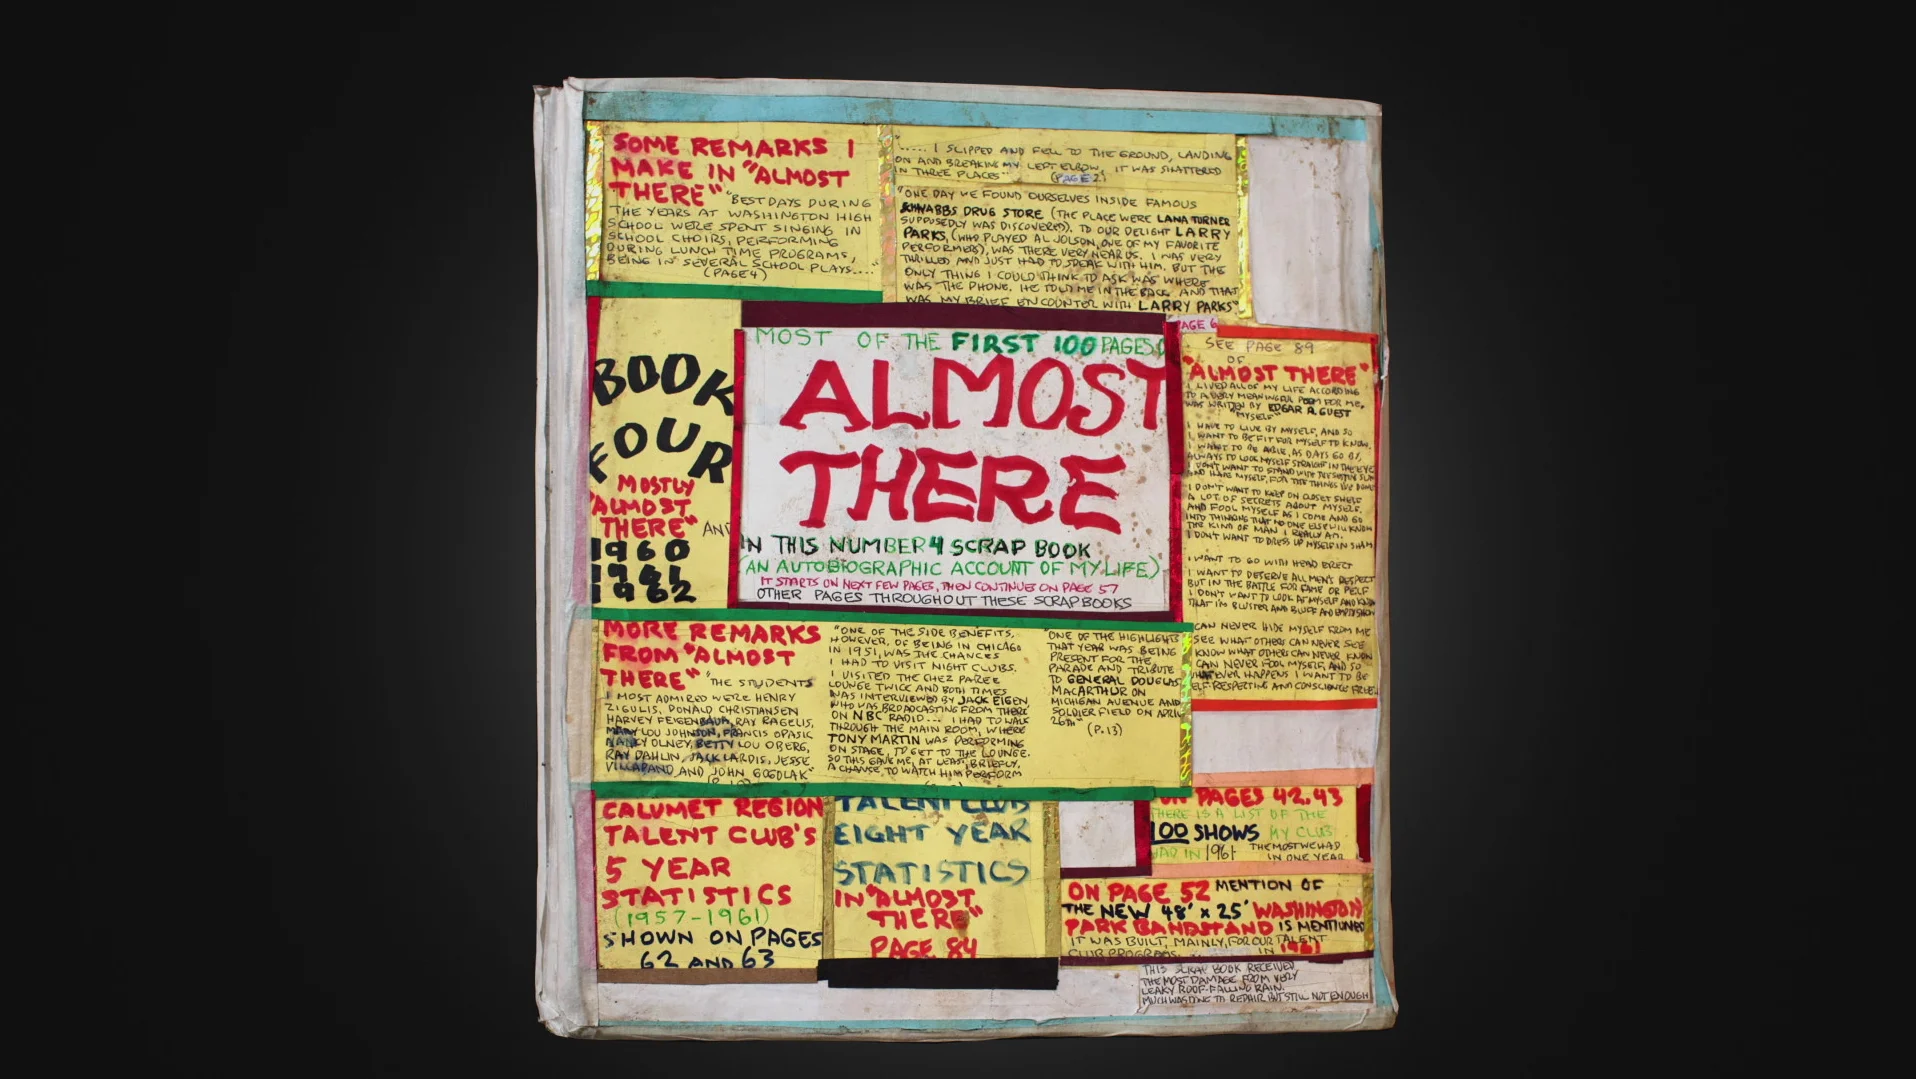 SOME REMARKS I
MAKE IN "ALMOST
THERE" "BEST DAYS DURING
THE YEARS AT WASHINGTON HIGH
SCHOOL WERE SPENT SINGING IN
SCHOOL CHOIRS, PERFORMING
DURING LUNCH TIME PROGRAMS,
BEING IN SEVERAL SCHOOL PLAYS...."
(PAGE 4)
"..... I SLIPPED AND FELL TO THE GROUND, LANDING
ON AND BREAKING MY LEFT ELBOW. IT WAS SHATTERED
IN THREE PLACES" (PAGE 2)
"ONE DAY WE FOUND OURSELVES INSIDE FAMOUS
SCHWABBS DRUG STORE (THE PLACE WERE LANA TURNER
SUPPOSEDLY WAS DISCOVERED). TO OUR DELIGHT LARRY
PARKS, (WHO PLAYED AL JOLSON, ONE OF MY FAVORITE
PERFORMERS), WAS THERE VERY NEAR US. I WAS VERY
THRILLED AND JUST HAD TO SPEAK WITH HIM. BUT THE
ONLY THING I COULD THINK TO ASK WAS WHERE
WAS THE PHONE. HE TOLD ME IN THE BACK AND THAT
WAS MY BRIEF ENCOUNTER WITH LARRY PARKS"
PAGE 6
BOOK
FOUR
MOSTLY
"ALMOST
THERE" AND
1960
1961
1962
MOST OF THE FIRST 100 PAGES OF
ALMOST
THERE
IN THIS NUMBER 4 SCRAP BOOK
(AN AUTOBIOGRAPHIC ACCOUNT OF MY LIFE)
IT STARTS ON NEXT FEW PAGES, THEN CONTINUES ON PAGE 57
OTHER PAGES THROUGHOUT THESE SCRAPBOOKS
SEE PAGE 89
OF
"ALMOST THERE"
I LIVED ALL OF MY LIFE ACCORDING
TO A VERY MEANINGFUL POEM FOR ME,
WAS WRITTEN BY EDGAR A. GUEST
"MYSELF"
I HAVE TO LIVE BY MYSELF, AND SO
I WANT TO BE FIT FOR MYSELF TO KNOW,
I WANT TO BE ABLE, AS DAYS GO BY,
ALWAYS TO LOOK MYSELF STRAIGHT IN THE EYE
I DON'T WANT TO STAND WITH THE SETTING SUN
AND HATE MYSELF, FOR THE THINGS I'VE DONE
I DON'T WANT TO KEEP ON CLOSET SHELF
A LOT OF SECRETS ABOUT MYSELF,
AND FOOL MYSELF AS I COME AND GO
INTO THINKING THAT NO ONE ELSE WILL KNOW
THE KIND OF MAN I REALLY AM,
I DON'T WANT TO DRESS UP MYSELF IN SHAM
I WANT TO GO WITH HEAD ERECT
I WANT TO DESERVE ALL MEN'S RESPECT
BUT IN THE BATTLE FOR FAME OR PELF
I DON'T WANT TO LOOK AT MYSELF AND KNOW
THAT I'M BLUSTER AND BLUFF AND EMPTY SHOW
CAN NEVER HIDE MYSELF FROM ME
SEE WHAT OTHERS CAN NEVER SEE
KNOW WHAT OTHERS CAN NEVER KNOW
CAN NEVER FOOL MYSELF, AND SO
WHATEVER HAPPENS I WANT TO BE
SELF-RESPECTING AND CONSCIENCE FREE"
MORE REMARKS
FROM "ALMOST
THERE" "THE STUDENTS
I MOST ADMIRED WERE HENRY
ZIGULIS, DONALD CHRISTIANSEN
HARVEY FEIGENBAUM, RAY RAGELIS,
MARY LOU JOHNSON, FRANCIS OPASIC
NANCY OLNEY, BETTY LOU OBERG,
RAY DAHLIN, JACK LARDIS, JESSE
VILLAPAND AND JOHN GOGOLAK"
"ONE OF THE SIDE BENEFITS,
HOWEVER, OF BEING IN CHICAGO
IN 1951, WAS THE CHANCES
I HAD TO VISIT NIGHT CLUBS.
I VISITED THE CHEZ PAREE
LOUNGE TWICE AND BOTH TIMES
WAS INTERVIEWED BY JACK EIGEN,
WHO WAS BROADCASTING FROM THERE
ON NBC RADIO... I HAD TO WALK
THROUGH THE MAIN ROOM, WHERE
TONY MARTIN WAS PERFORMING
ON STAGE, TO GET TO THE LOUNGE.
SO THIS GAVE ME, AT LEAST, BRIEFLY,
A CHANCE TO WATCH HIM PERFORM
"ONE OF THE HIGHLIGHTS
THAT YEAR WAS BEING
PRESENT FOR THE
PARADE AND TRIBUTE
TO GENERAL DOUGLAS
MACARTHUR ON
MICHIGAN AVENUE AND
SOLDIER FIELD ON APRIL
26TH"
(P.13)
CALUMET REGION
TALENT CLUB'S
5 YEAR
STATISTICS
(1957-1961)
SHOWN ON PAGES
62 AND 63
TALENT CLUB
EIGHT YEAR
STATISTICS
IN "ALMOST
THERE"
PAGE 84
ON PAGES 42.43
THERE IS A LIST OF THE
100 SHOWS MY CLUB
HAD IN 1961 THE MOST WE HAD
IN ONE YEAR
ON PAGE 52 MENTION OF
THE NEW 48' x 25' WASHINGTON
PARK BANDSTAND IS MENTIONED
IT WAS BUILT, MAINLY, FOR OUR TALENT
CLUB PROGRAMS. IN 1961
THIS SCRAP BOOK RECEIVED
THE MOST DAMAGE FROM VERY
LEAKY ROOF-FALLING RAIN.
MUCH WAS DONE TO REPAIR BUT STILL NOT ENOUGH